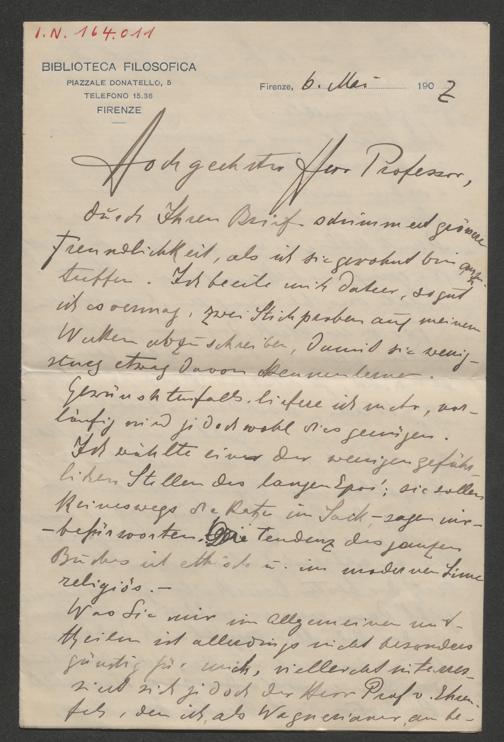 I.N. 164.011
BIBLIOTECA FILOSOFICA
PIAZZALE DONATELLO, 5
TELEFONO 15.36
FIRENZE
Firenze, 6. Mai 1907
Hochgeehrter Herr Professor,
durch Ihren Brief schimmert grössere
Freundlichkeit, als ich sie gewohnt bin anzu-
treffen. Ich beeile mich daher, so gut
ich es vermag, zwei Stichproben aus meinen
Werken abzuschreiben, damit Sie wenig-
stens etwas davon kennen lernen.
Gewünschtenfalls liefere ich mehr, vor-
läufig wird jedoch wohl dies genügen.
Ich wählte eine der wenigen gefühl-
lichen Stellen des langen Epos'; sie sollen
keineswegs die Katze im Sack – sagen wir
– befürworten. Die Tendenz des ganzen
Buches ist ethisch u. im modernen Sinne
religiös. –
Was Sie mir im Allgemeinen mit-
theilen ist allerdings nicht besonders
günstig für mich, vielleicht interes-
siert sich jedoch der Herr Prof. v. Ehren-
fels, den ich, als Wagnerianer, am be-